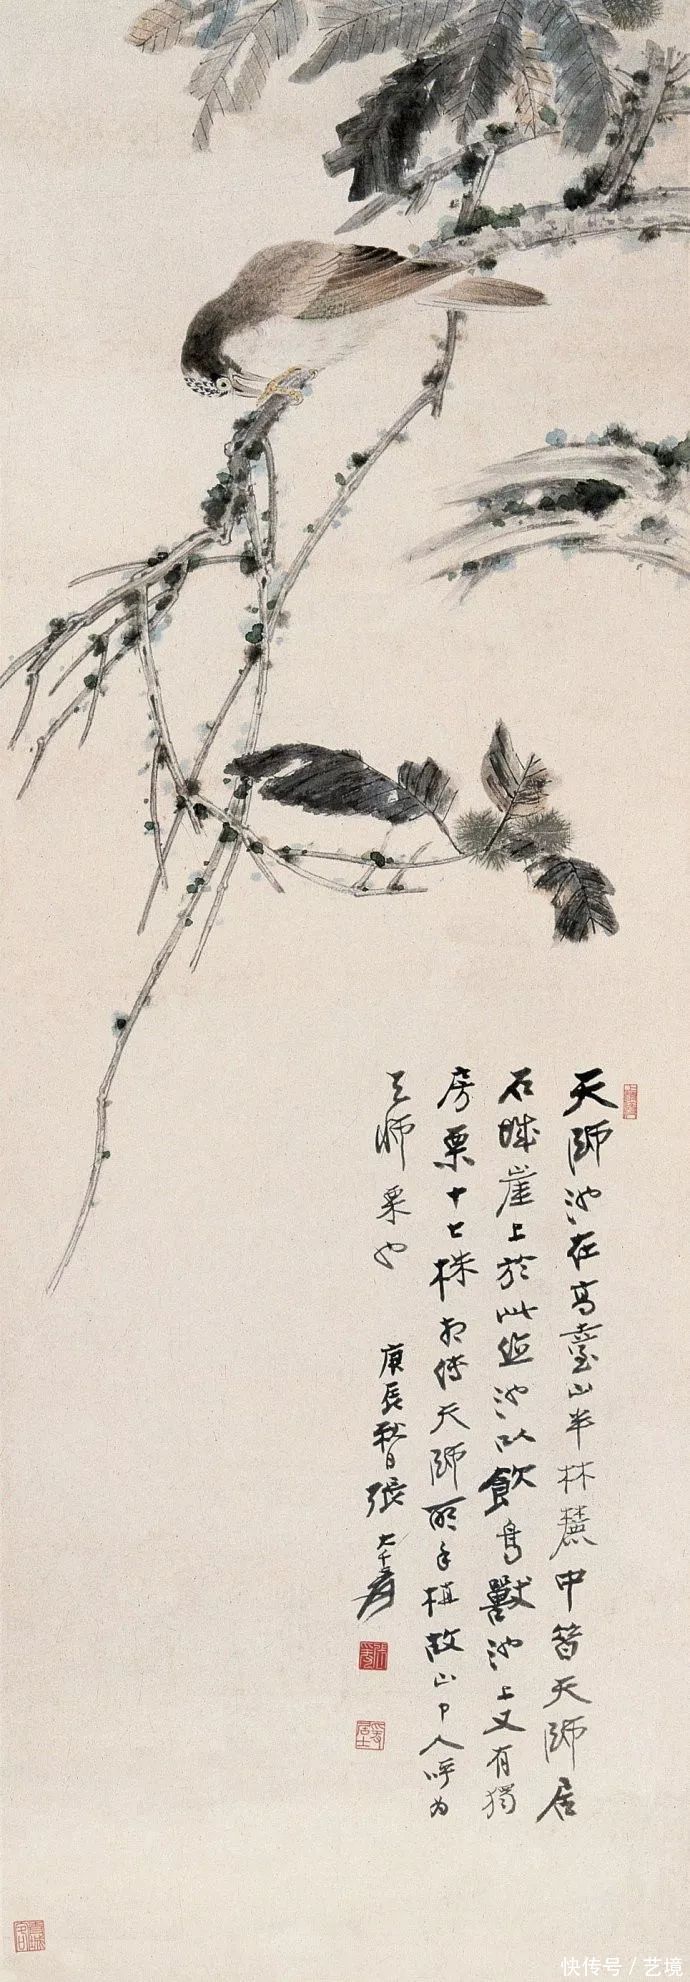 天師池在高臺山半林麓中昝天師居
石城崖上於此鑿池以飲鳥獸池上又有獨
房栗十七株相傳天師所手植故山中人呼為
天師栗也
庚辰秋日張大千爰
快传号/艺境